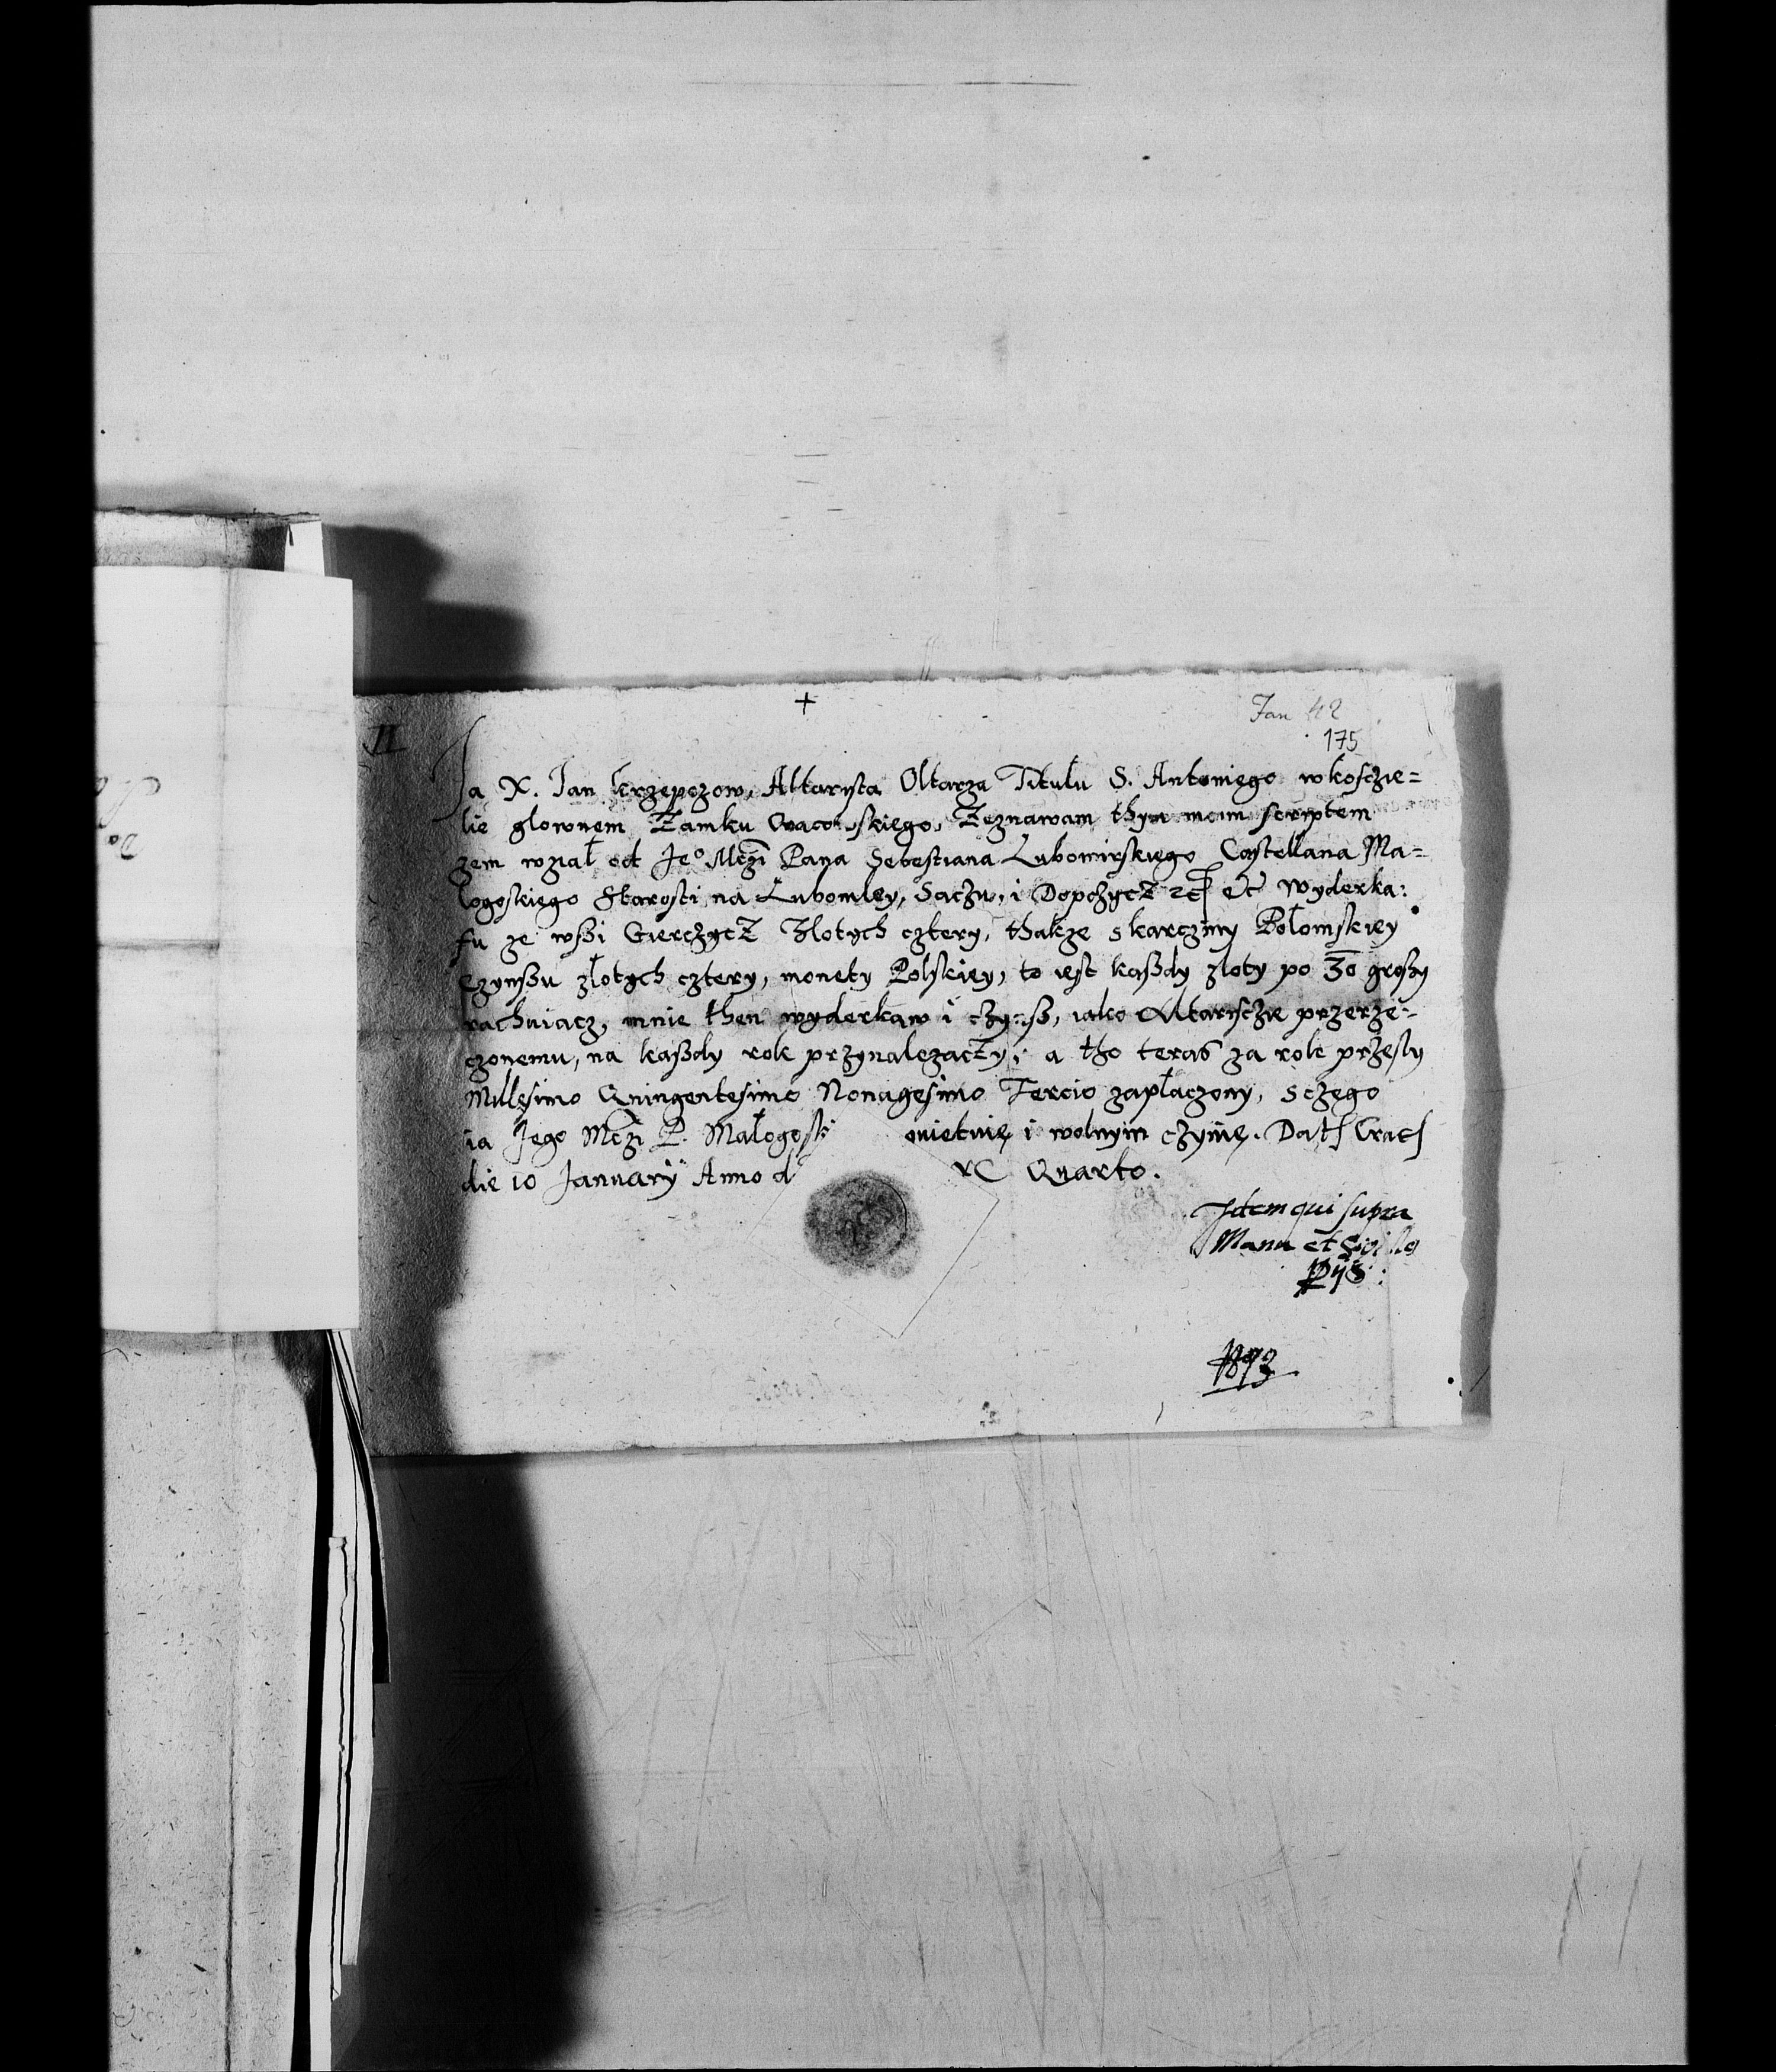 +
Jan 42
175
II
Ja X. Jan Krzepczow, Altarysta Oltarza Titulu S. Antoniego w kosczie=
lie glownem Zamku Cracowskiego, Zeznawam thym moim scriptem
zem wział od Jeo Mczi Pana Sebestiana Lubomirskiego Castellana Ma=
logoskiego Starosti na Lubomley, Saczu, i Dopczycz etc Et Wyderka:
fu ze wsßi Gierczycz Zlotych cztery, thakze s karczmy Połomskiey
Czynßu złotych cztery, monety Polskiey, to iest kaßdy zloty po 30 groszy
rachuiacz, mnie then wyderkaw i czynß, iako Altarisczie przerze=
czonemu, na kaßdy rok przynalezaczy; a tho teras za rok przesly
Millesimo Quingentesimo Nonagesimo Tercio zapłaczony, s czego
ia Jego Mczi P. Małogosk owietnie i wolnym czynię. Dat Crac
die 10 January Anno d Quarto.
Idem qui supra
Manu et Sigillo
1893